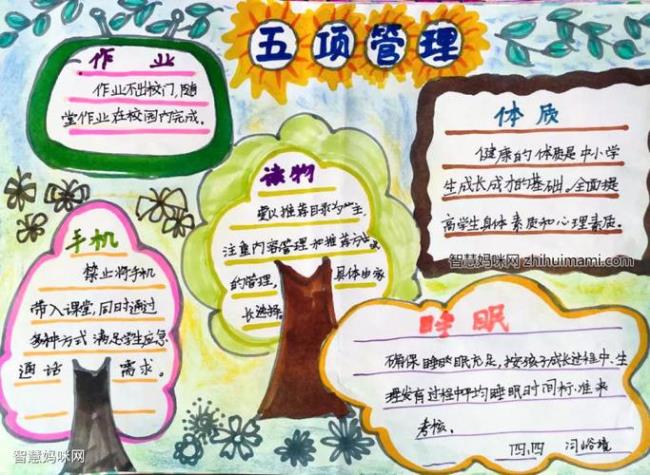 五项管理
作业
作业不出校门,随
堂作业在校园内完成。
体质
健康的体质是中小学
生成长成才的基础。全面提
高学生身体素质和心理素质。
智慧妈咪网 zhihuimami.com
读物
要以推荐目录为主,
注重内容管理和推荐
的管理, 具体由家
长选择
手机
禁止将手机
带入课堂,同时通过
多种方式 满足学生应急
通话 需求。
睡眠
确保睡眠充足,按孩子成长过程中,生
理发育过程中平均睡眠时间标准来
考核。
四.四
智慧妈咪网